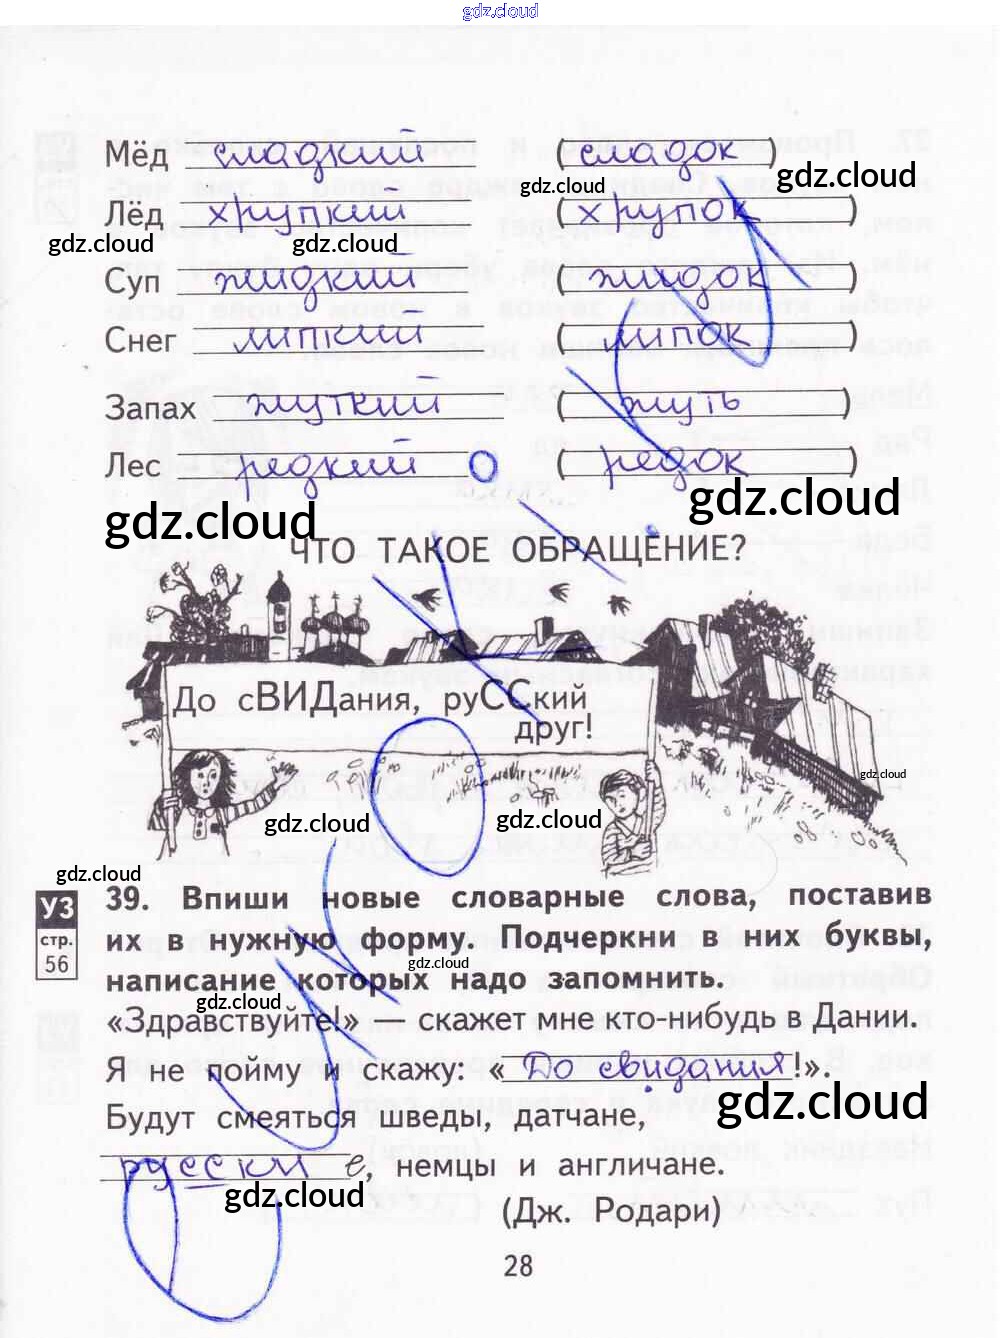 gdz.cloud
Мёд сладкий (сладок)
gdz.cloud gdz.cloud
Лёд хрупкий (хрупок)
gdz.cloud gdz.cloud
Суп жидкий (жидок)
Снег липкий (липок)
Запах жуткий (жуть)
Лес редкий (редок)
gdz.cloud gdz.cloud
ЧТО ТАКОЕ ОБРАЩЕНИЕ?
До сВИДания, руССкий
друг!
gdz.cloud
gdz.cloud gdz.cloud
gdz.cloud
УЗ
стр.
56
39. Впиши новые словарные слова, поставив
их в нужную форму. Подчеркни в них буквы,
gdz.cloud
написание которых надо запомнить.
gdz.cloud
«Здравствуйте!» — скажет мне кто-нибудь в Дании.
Я не пойму и скажу: «До свидания!».
gdz.cloud
Будут смеяться шведы, датчане,
русские, немцы и англичане.
gdz.cloud
(Дж. Родари)
28